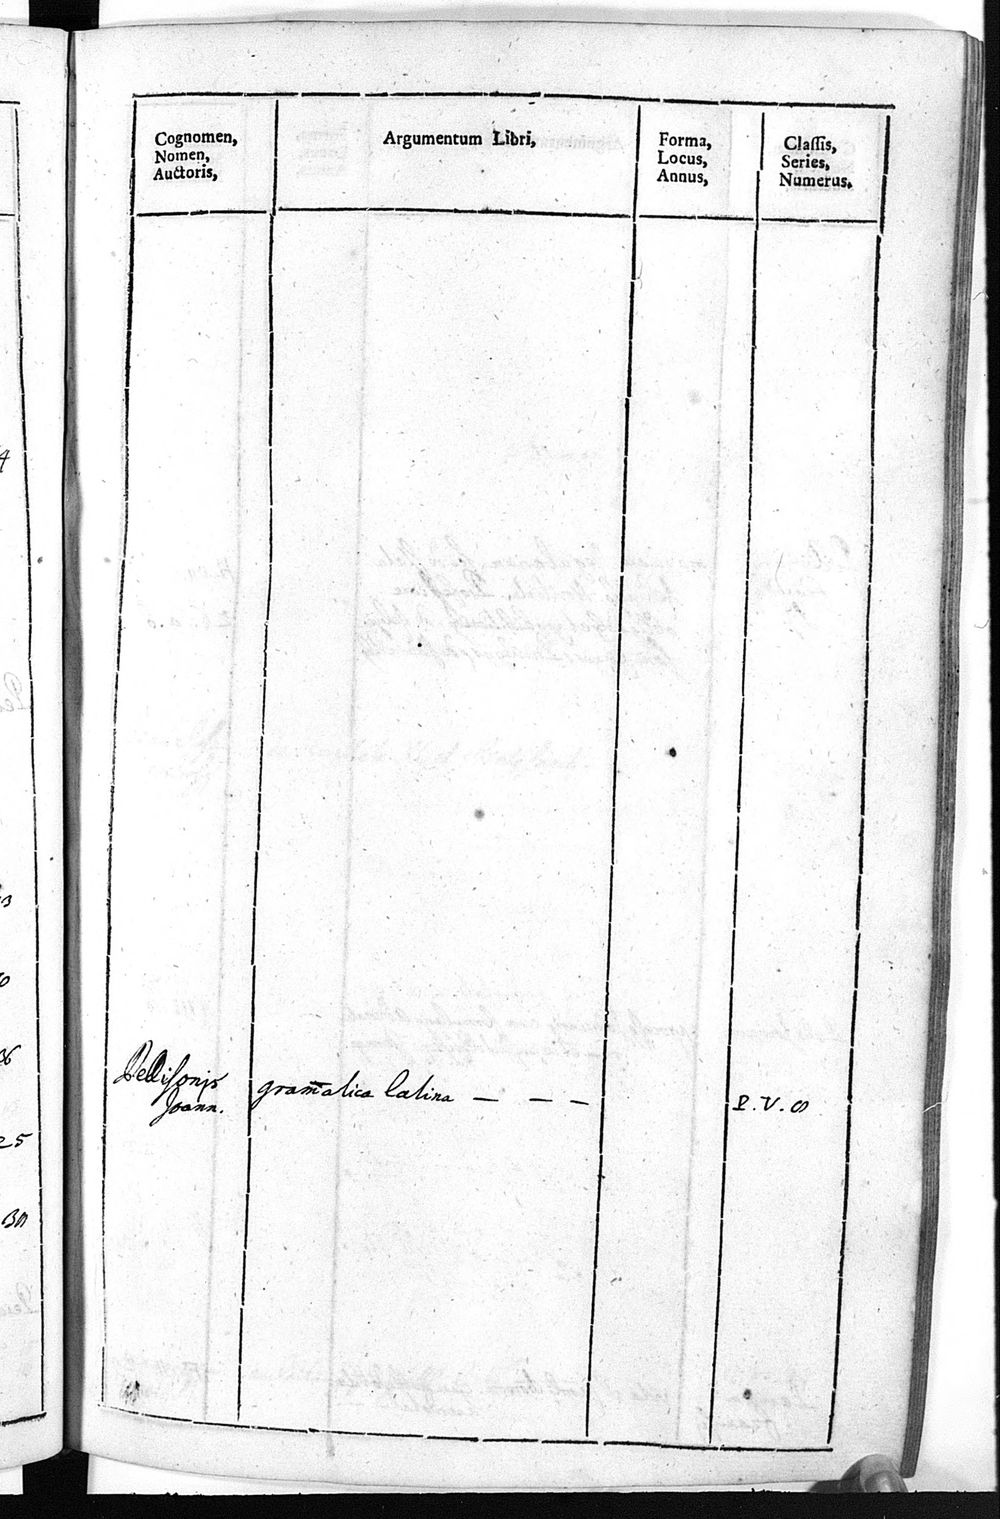 Cognomen,
Nomen,
Auctoris,
Argumentum Libri,
Forma,
Locus,
Annus,
Classis,
Series,
Numerus.
Pellisonis
Joann.
gram̄atica latina — — —
P. V. 8
4
25